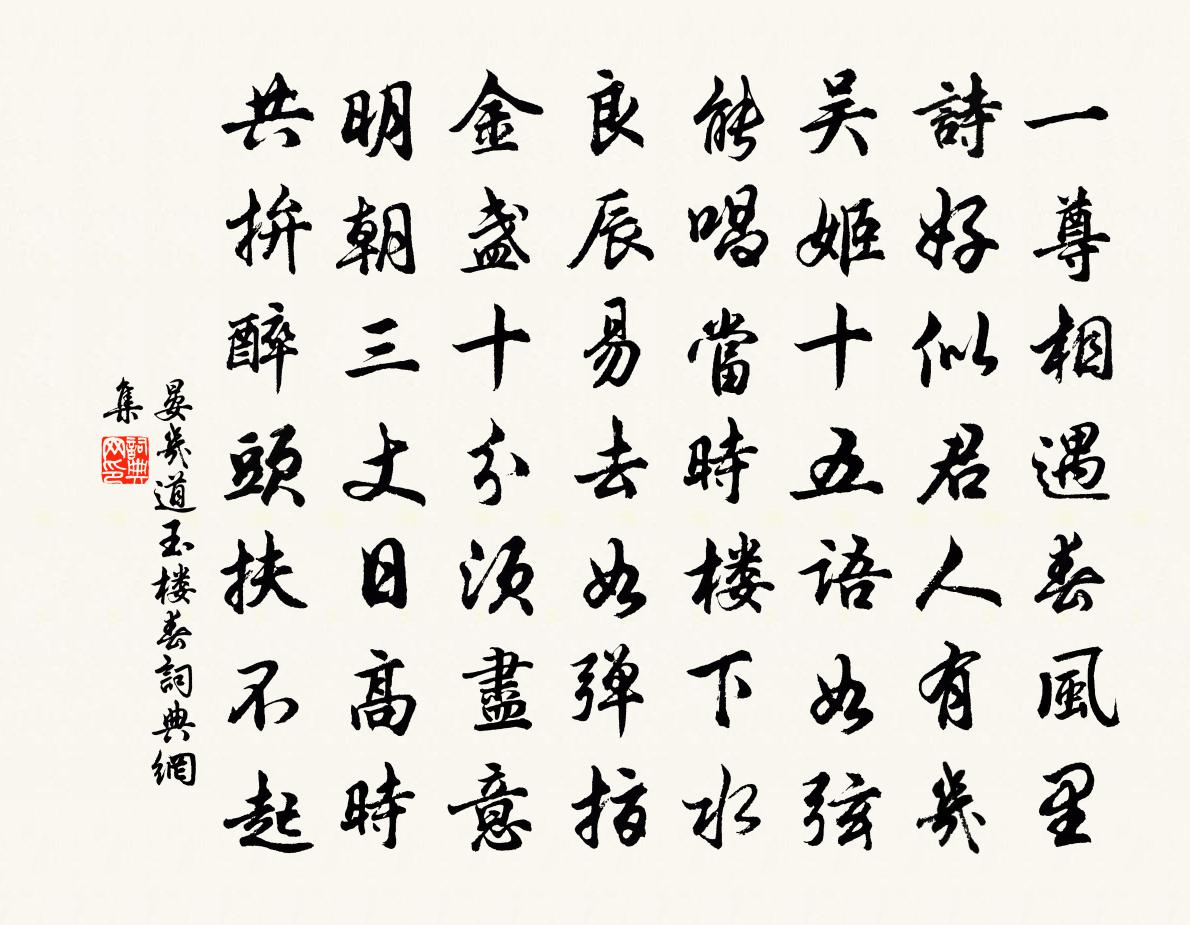 一尊相遇春風里
詩好似君人有幾
吴姬十五語如弦
能唱當時楼下水
良辰易去如弹指
金盏十分须盡意
明朝三丈日高時
共拚醉頭扶不起
晏幾道玉楼春詞典網
集
詞典
网印